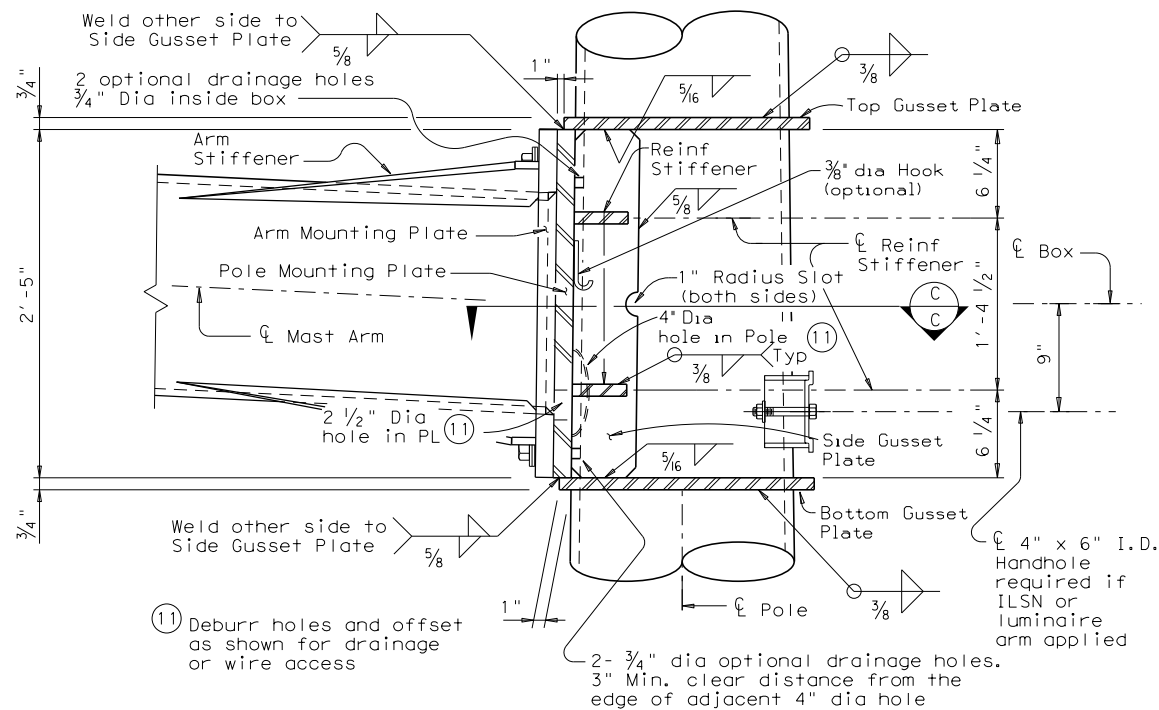 Weld other side to
Side Gusset Plate
5/8
1"
3/8
3/4"
2 optional drainage holes
3/4" Dia inside box
5/16
Top Gusset Plate
Arm
Stiffener
Reinf
Stiffener
3/8" dia Hook
(optional)
6 1/4"
5/8
Arm Mounting Plate
℄ Reinf
Stiffener
℄ Box
Pole Mounting Plate
1" Radius Slot
(both sides)
C
C
2'-5"
1'-4 1/2"
℄ Mast Arm
4" Dia
hole in Pole
11
Typ
3/8
9"
2 1/2" Dia
hole in PL
11
Side Gusset
Plate
6 1/4"
5/16
3/4"
Weld other side to
Side Gusset Plate
5/8
Bottom Gusset
Plate
℄ 4" x 6" I.D.
Handhole
required if
ILSN or
luminaire
arm applied
1"
℄ Pole
3/8
11 Deburr holes and offset
as shown for drainage
or wire access
2- 3/4" dia optional drainage holes.
3" Min. clear distance from the
edge of adjacent 4" dia hole